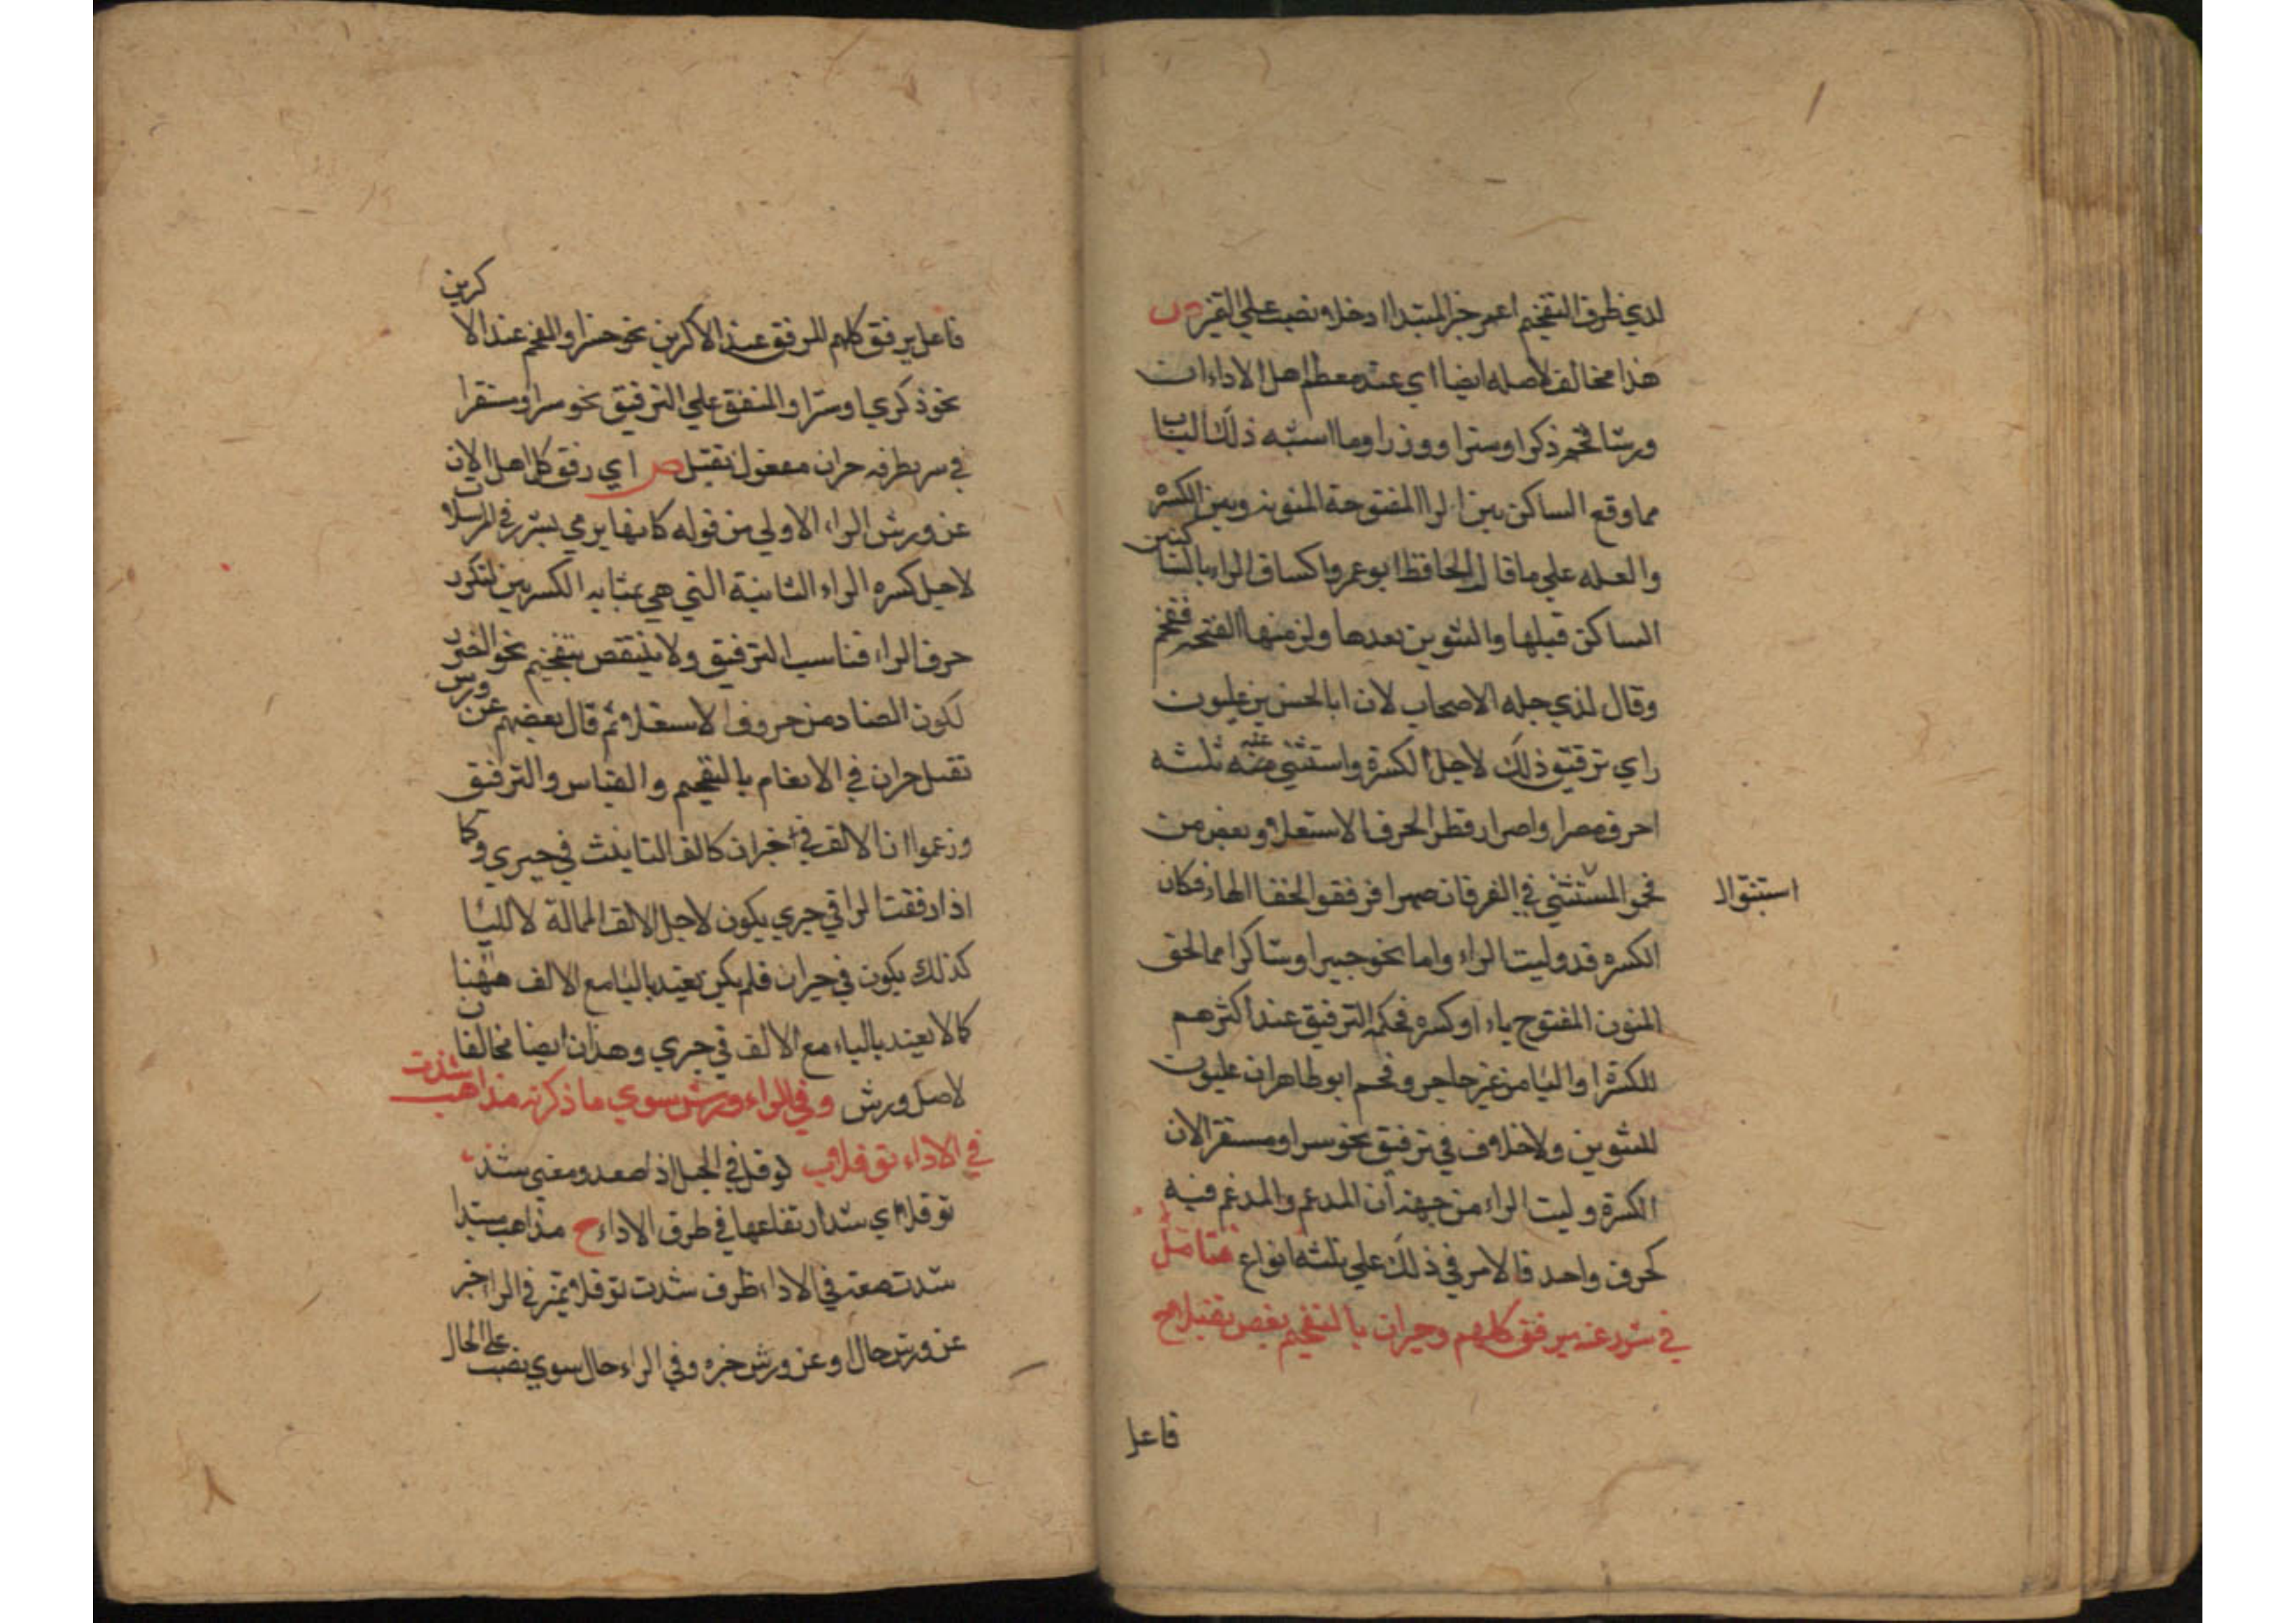 لدي ظرف التفخيم اعمر خبر المبتدا ارخلا ونصب علي التميز ص
هذا مخالف لاصله ايضا اي عند معظم اهل الاداء ان
ورشا فخم ذكرا وسترا ووزرا وما اشبه ذلك الباب
مما وقع الساكن بين الرا المفتوحة المنونه وبين الكسره
والعله علي ما قال الحافظ ابو عمرو اكتناف الراء بالساكنين
الساكن قبلها والتنوين بعدها ولزمنها الفتحه ففخم
وقال لذي جله الاصحاب لان ابا الحسن بن غلبون
راي ترقيق ذلك لاجل الكسرة واستثني منه ثلثه
احرف مصرا واصرا وقطرا لحرف الاستعلاء وبعض من
استبنوال
نحو المستثني في الفرقان صهرا فرققو الخفا الهاء فكان
الكسره قد وليت الراء واما نحو خبيرا وشاكرا مما لحق
المنون المفتوح ياء او كسره فحكمه الترقيق عند اكثرهم
للكسرة او اليا من غير حاجر وفخم ابو طاهر ان غلبون
للتنوين ولا خلاف في ترقيق نحو سرا ومستقرا لان
الكسرة وليت الراء من جهة ان المدغم والمدغم فيه
كحرف واحد فالامر في ذلك علي ثلثه انواع
في شرر عنه يرقق كلهم وحيران بالتفخيم بعض تقبلا ح
فاعل
فاعل يرقق كلهم المرقق عند الاكرين نحو خبرا والمفخم عند الاكرين
نحو ذكري او سترا والمتفق علي الترقيق نحو سرا ومستقرا
في سرر ظرفه حران مفعول تقبل ص اي رقق كل اهل الان
عن ورش الراء الاولي من قوله كا نها يرمي بشرر في المرسلات
لاجل كسره الراء الثانية التي هي بمثابه الكسرتين لتكرر
حرف الراء فناسب الترقيق ولا ينتقص بتفخيم نحو الضرر
لكون الضاد من حروف الاستعلاء ثم قال بعضهم عن ورش
تقبل حران في الانعام بالتفخيم والقياس والترقيق
وزعموا ان الالف في حيران كالف التانيث في حيري وكا
اذا رققت الرا في حيري يكون لاجل الالف الممالة لا لليا
كذلك يكون في حيران فلم يكن يعتد باليا مع الالف ههنا
كما لا يعتد بالياء مع الالف في حيري وهذان ايضا مخالفان
لاصل ورش وفي الراء ورش سوي ما ذكرته مذاهب شذت
في الاداء توقلا ب توقل في الجبل اذا صعد ومعني شذ
توقلا اي شذ ارتفاعها في طرق الاداء ح مذاهب مبتدا
شذت صفته في الاداء ظرف شذت توقلا تميز في الرا خبر
عن ورش حال او عن ورش خبره وفي الراء حال سوي نصب علي الحال